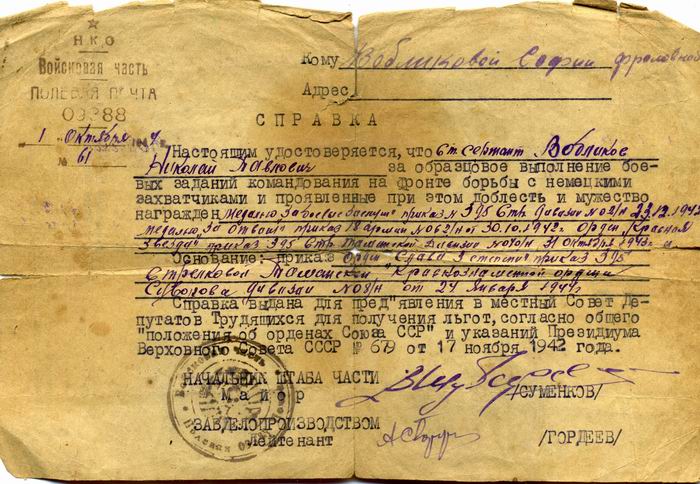 Н К О
Войсковая часть
ПОЛЕВАЯ ПОЧТА
09388
1 октября
№ 61
Кому Вобликовой Софии Фроловной
Адрес
СПРАВКА
Настоящим удостоверяется, что ст сержант Вобликов
Николай Павлович за образцовое выполнение бое-
вых заданий командования на фронте борьбы с немецкими
захватчиками и проявленные при этом доблесть и мужество
награжден медалью "За боевые заслуги" приказ № 395 Стр. дивизии № 021/н 23.12.1942
медалью "За Отвагу" приказ 18 армии № 62/н от 30.10.1942г. Орден "Красная
Звезда" приказ 395 Стр. Таманской дивизии № 070/н 31 октября 1943г и
Основание: приказ Орден Слава 3 степени приказ 395
Стрелковой Таманской Краснознаменной ордена
Суворова дивизии № 08/н от 24 января 1944г
Справка выдана для пред"явления в местный Совет Де-
путатов Трудящихся для получения льгот, согласно общего
"положения об орденах Союза ССР" и указаний Президиума
Верховного Совета СССР № 679 от 17 ноября 1942 года.
НАЧАЛЬНИК ШТАБА ЧАСТИ
майор /СУМЕНКОВ/
ЗАВДЕЛОПРОИЗВОДСТВОМ
Лейтенант /ГОРДЕЕВ/